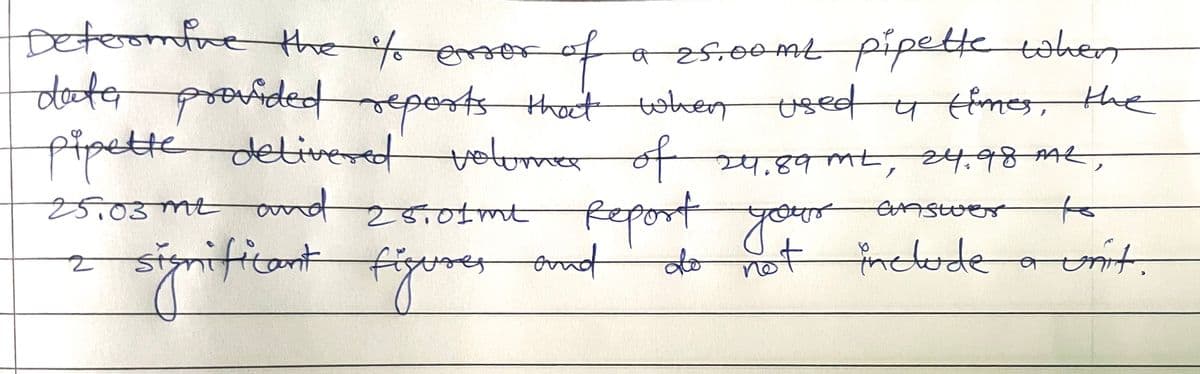 Determine the % error of a 25.00 mL pipette when
data provided reports that when used 4 times, the
pipette delivered volumes of 24.89 mL, 24.98 mL,
25.03 mL and 25.01 mL Report your answer to
2 significant figures and do not include a unit.